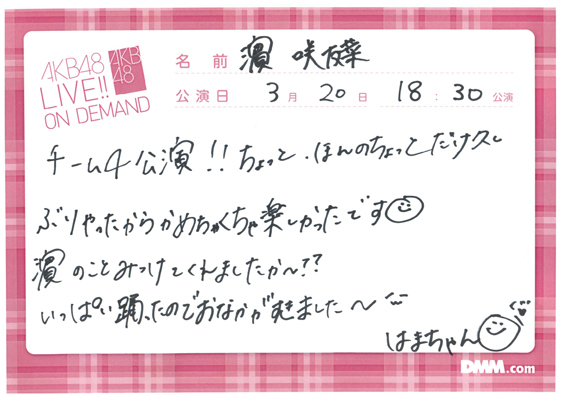 AKB48
LIVE!!
ON DEMAND
AKB
48
名前 濵 咲友菜
公演日 3月20日 18:30公演
チーム4公演!!ちょっと、ほんのちょっとだけ久し
ぶりやったからかめちゃくちゃ楽しかったです
濵のことみつけてくれましたか〜??
いっぱい踊ったのでおなかがすきました〜
はまちゃん
DMM.com